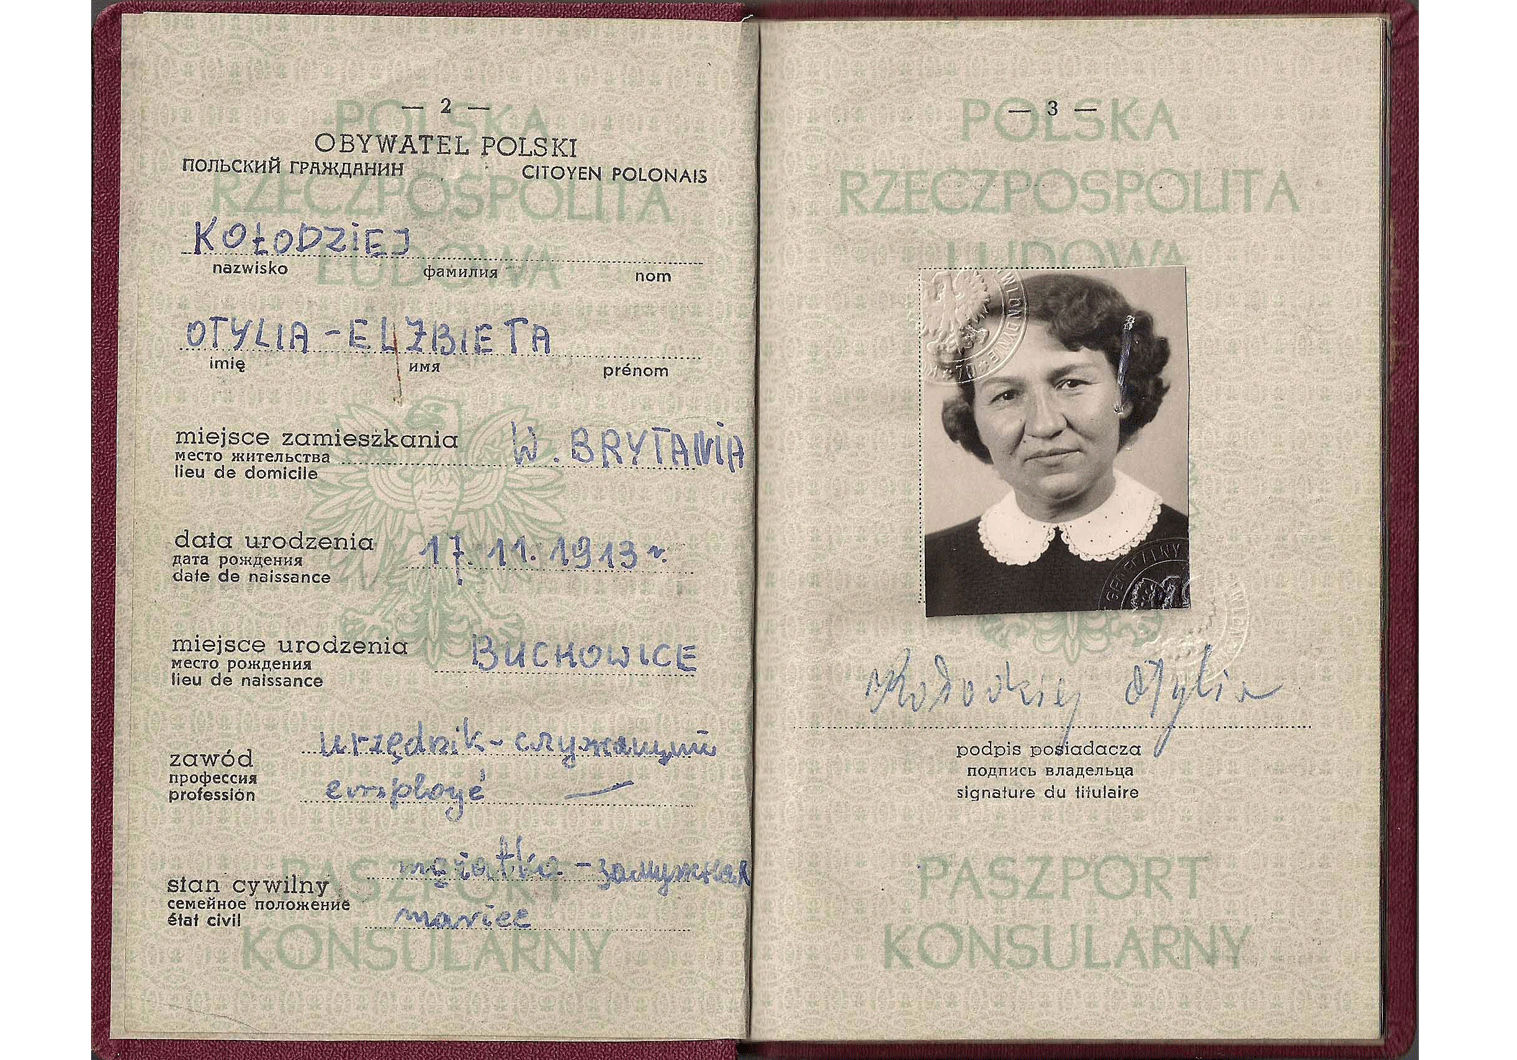 — 2 —
OBYWATEL POLSKI
ПОЛЬСКИЙ ГРАЖДАНИН CITOYEN POLONAIS
KOŁODZIEJ
nazwisko фамилия nom
OTYLIA-ELŻBIETA
imię имя prénom
miejsce zamieszkania W. BRYTANIA
место жительства
lieu de domicile
data urodzenia 17.11.1913 r.
дата рождения
date de naissance
miejsce urodzenia BUCHOWICE
место рождения
lieu de naissance
urzędnik - служащий
zawód
профессия employé —
profession
mężatka - замужняя
stan cywilny
семейное положение mariee
état civil
POLSKA
RZECZPOSPOLITA
LUDOWA
PASZPORT
KONSULARNY
— 3 —
POLSKA
RZECZPOSPOLITA
LUDOWA
Kołodziej Otylia
podpis posiadacza
подпись владельца
signature du titulaire
PASZPORT
KONSULARNY